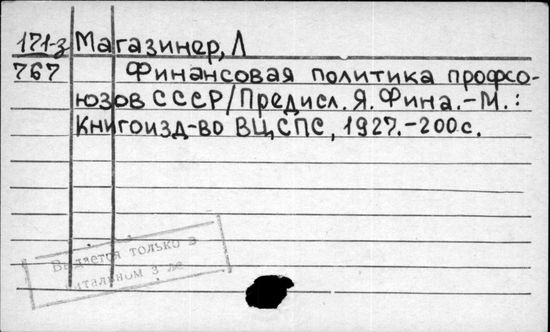 171-з Магазинер, Л
767 Финансовая политика профсо-
юзов СССР/Предисл. Я. Фина.-М.:
Книгоизд-во ВЦСПС, 1927.-200с.
Выдается только в
читальном зале